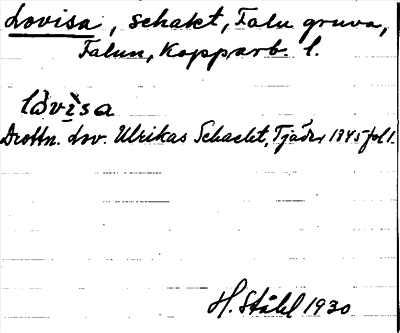 Lovisa, schakt, Falu gruva,
Falun, Kopparb. l.
lovìsa
Drottn. Lov. Ulrikas Schacht, Tjäder 1845 fol 1.
H. Ståhl 1930